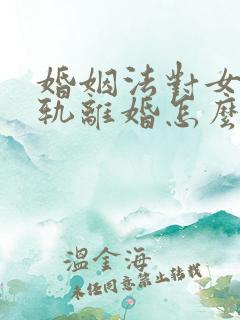 婚姻法對女
軌離婚怎麼
溫金海
未經同意禁止轉載